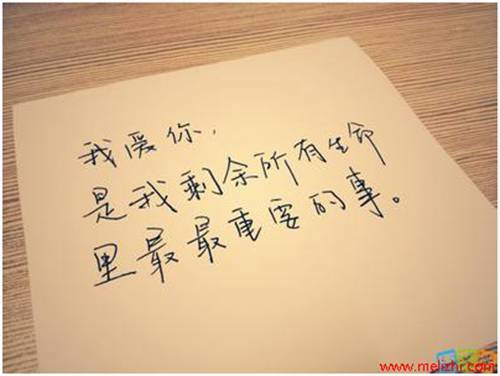 我爱你，
是我剩余所有生命
里最最重要的事。
www.meilizhr.com